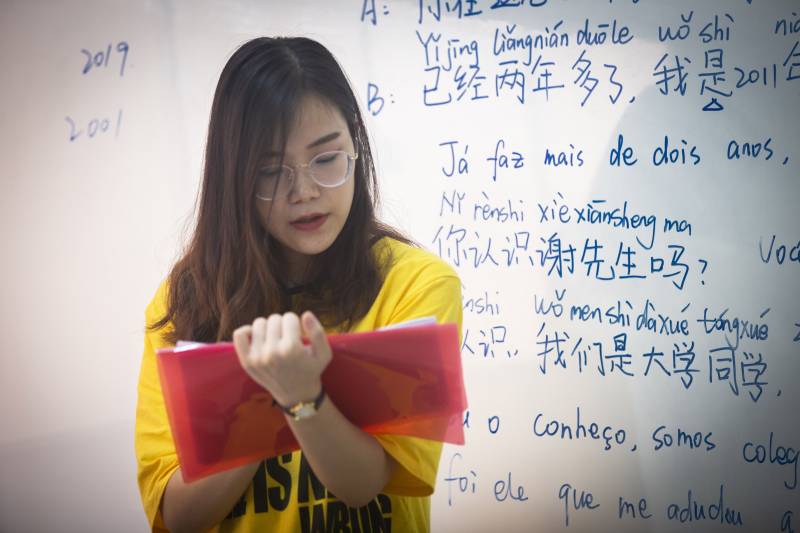 2019
2001
A: 你在
Yǐjīng liǎngnián duōle wǒ shì
B: 已经两年多了, 我是2011年
Já faz mais de dois anos,
Nǐ rènshi xièxiānsheng ma
你认识谢先生吗? Você
wǒmenshìdàxué tóngxué
认识, 我们是大学同学,
o conheço, somos coleg
foi ele que me adudou a
IS N
WRON